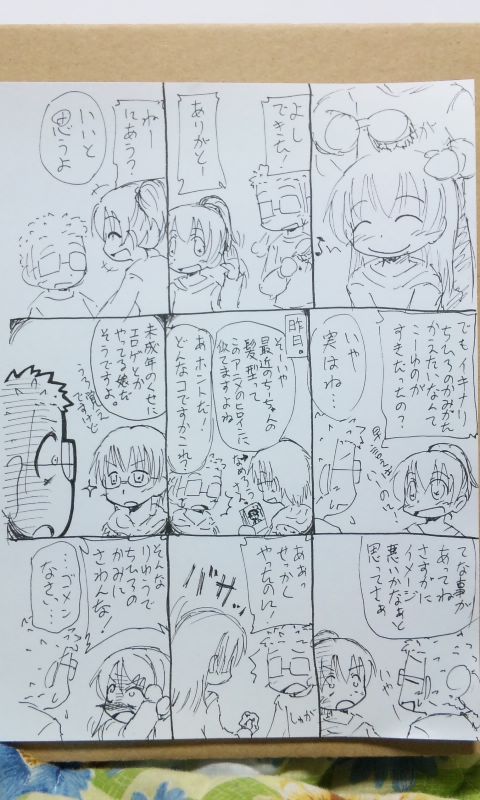 よし
できた!
ありがとー
ねー
にあう?
いいと
思うよ
でもイキナリ
ちひろのかみかた
かえたいなんて
こーゆのが
すきだっちの?
いや
実はね…
昨日。
そいや
最近のちーちゃんの
髪型って
このアニメのヒロインに
似てますよね
あホントだ!
どんなコですかこれ?
未成年のクセに
エロゲとか
やってる娘だ
そうですよ。
てな事が
あってね
さすがに
イメージ
悪いかなぁと
思ってさぁ
あぁっ
せっかく
やったのに!
バサ
そんな
りゆうで
ちひろの
かみに
さわんな!
…ゴメン
なさい…